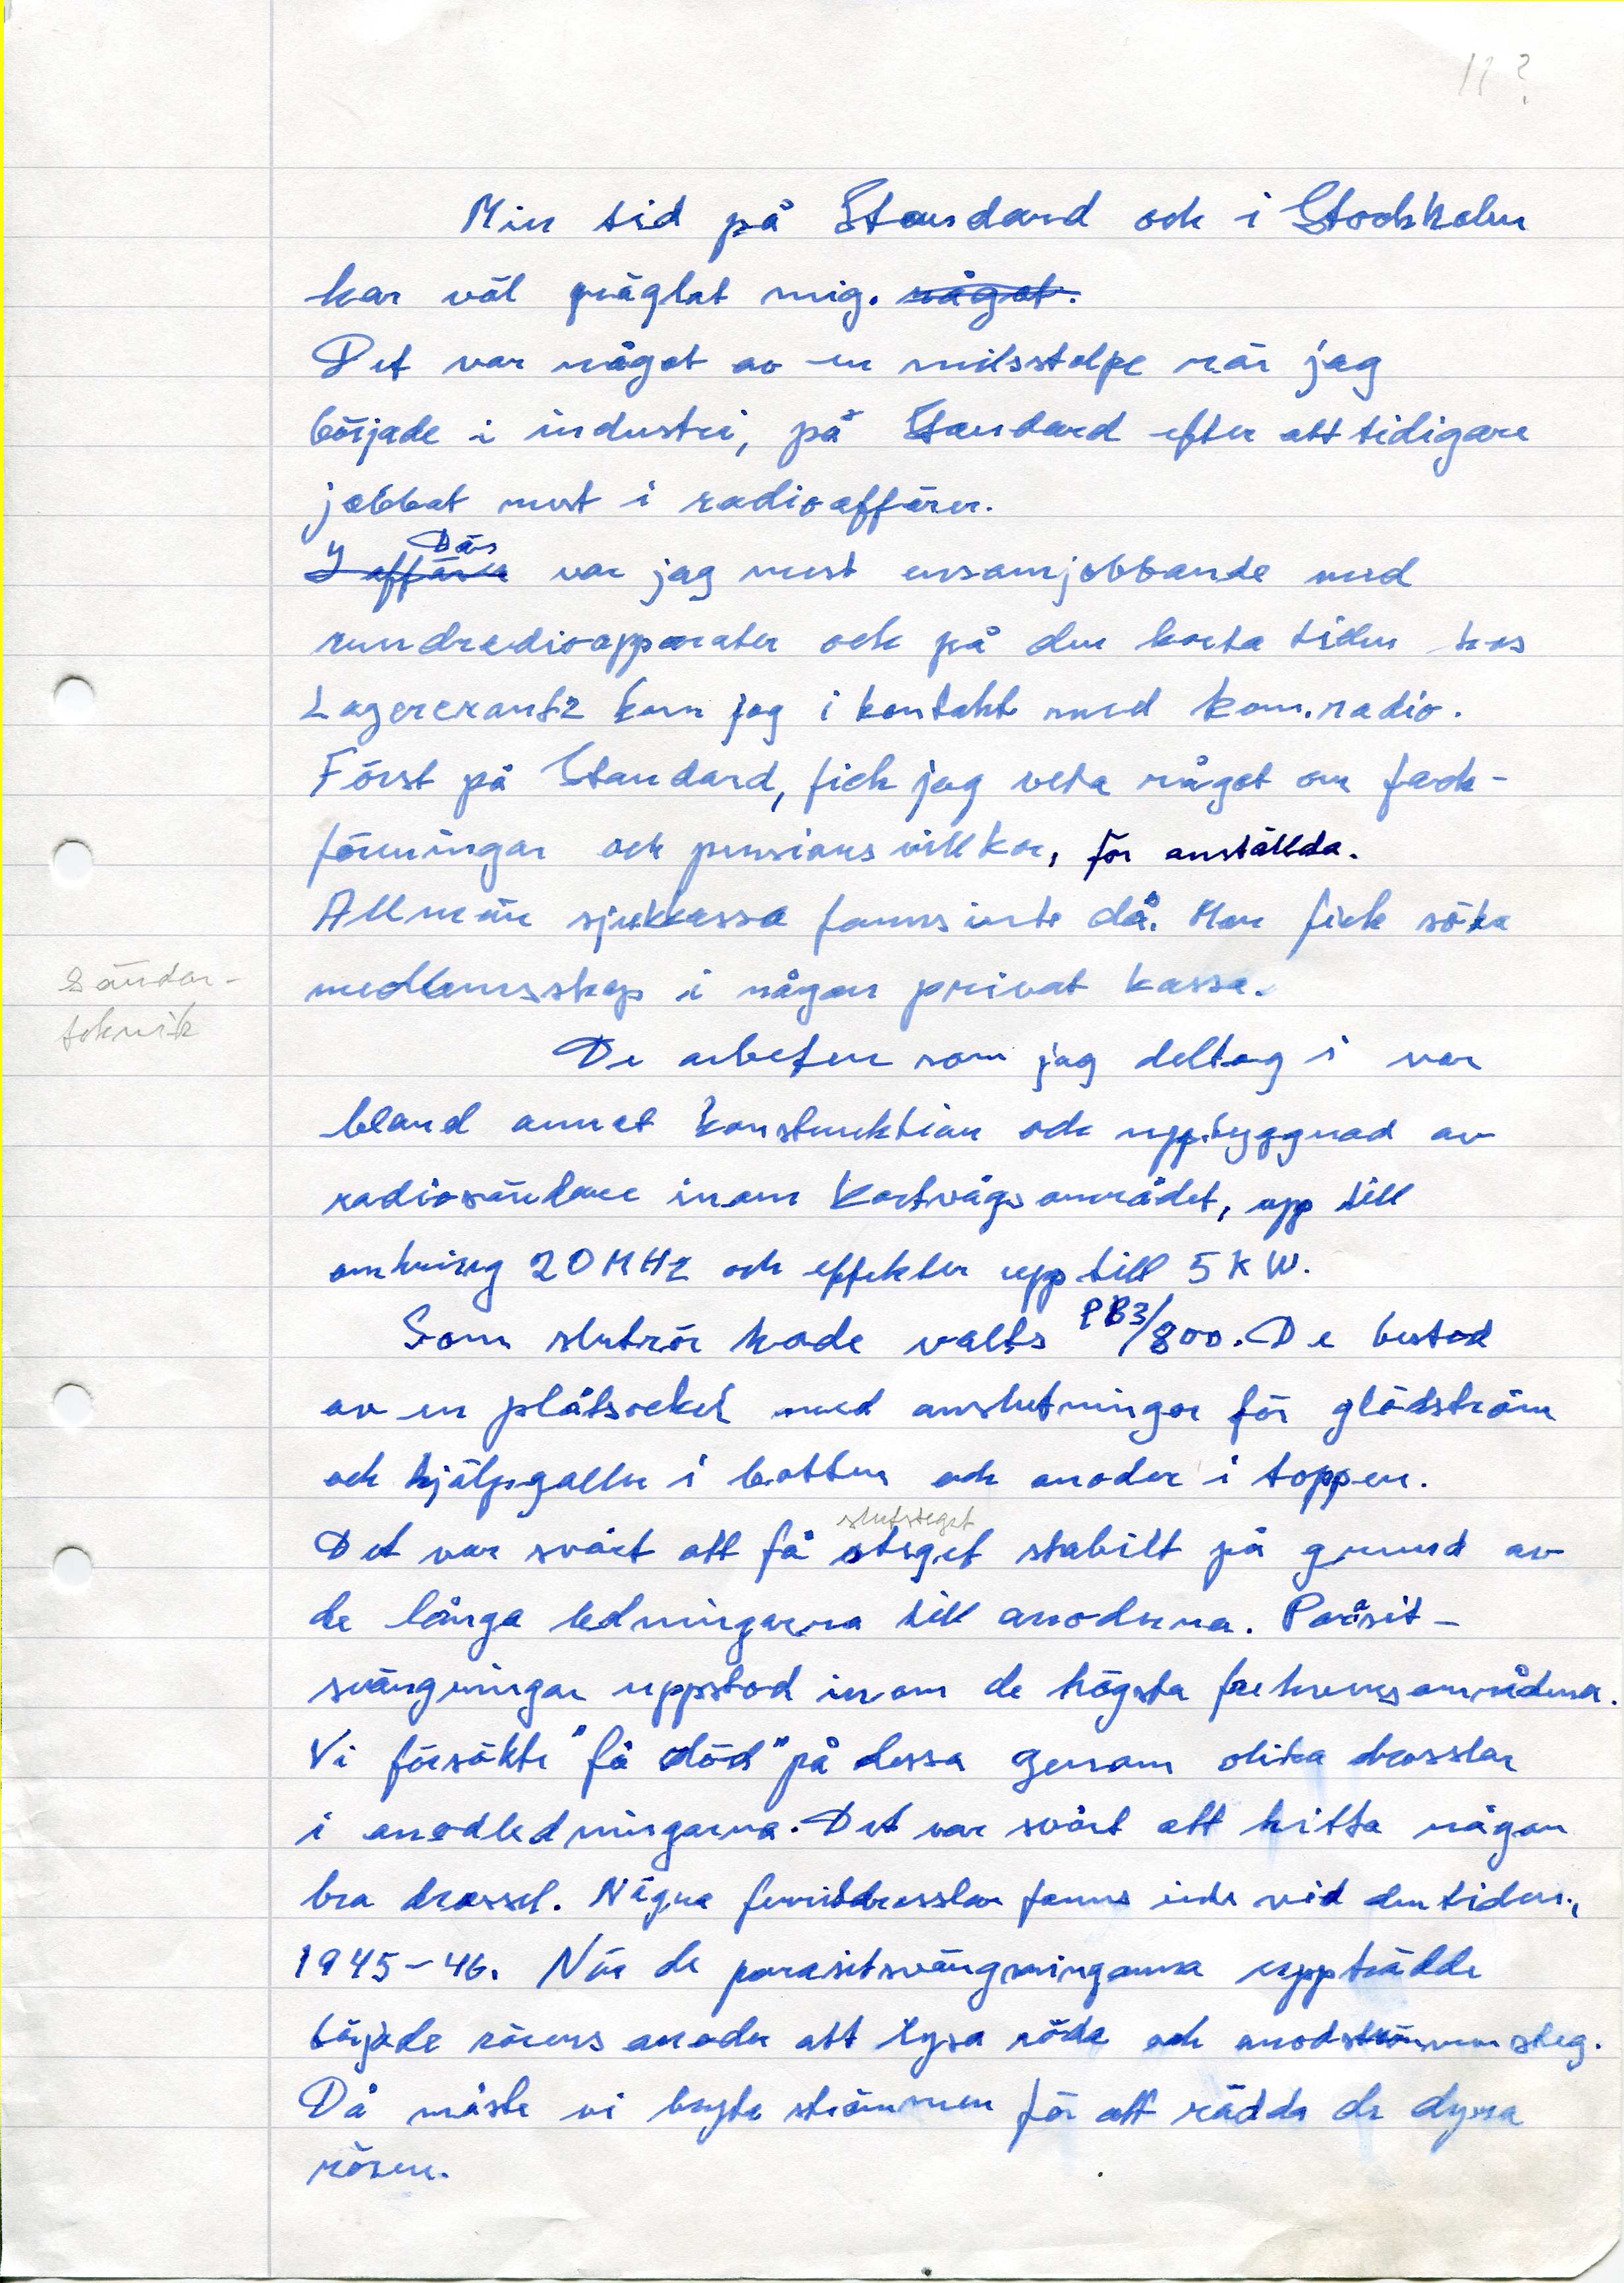 11?
Min tid på Standard och i Stockholm
har väl präglat mig. något.
Det var något av en milsstolpe när jag
började i industri, på Standard efter att tidigare
jobbat mest i radioaffärer.
Där
I affären var jag mest ensamjobbande med
rundradioapparater och på den korta tiden hos
Lagercrantz kom jag i kontakt med kom.radio.
Först på Standard, fick jag veta något om fack-
föreningar och pensionsvillkor, för anställda.
Allmän sjukkassa fanns inte då. Man fick söka
medlemsskap i någon privat kassa.
Sändar-
teknik
De arbeten som jag deltog i var
bland annat konstruktion och uppbyggnad av
radiosändare inom kortvågsområdet, upp till
omkring 20 MHz och effekter upp till 5 KW.
Som slutrör hade valts PB3/800. De bestod
av en plåtsockel med anslutningar för glödström
och hjälpgaller i botten och anoder i toppen.
slutsteget
Det var svårt att få steget stabilt på grund av
de långa ledningarna till anoderna. Parasit-
svängningar uppstod inom de högsta frekvensområdena.
Vi försökte "få död" på dessa genom olika drosslar
i anodledningarna. Det var svårt att hitta någon
bra drossel. Några ferritdrosslar fanns inte vid den tiden,
1945-46. När de parasitsvängningarna uppträdde
började rörens anoder att lysa röda och anodströmmen steg.
Då måste vi bryta strömmen för att rädda de dyra
rören.